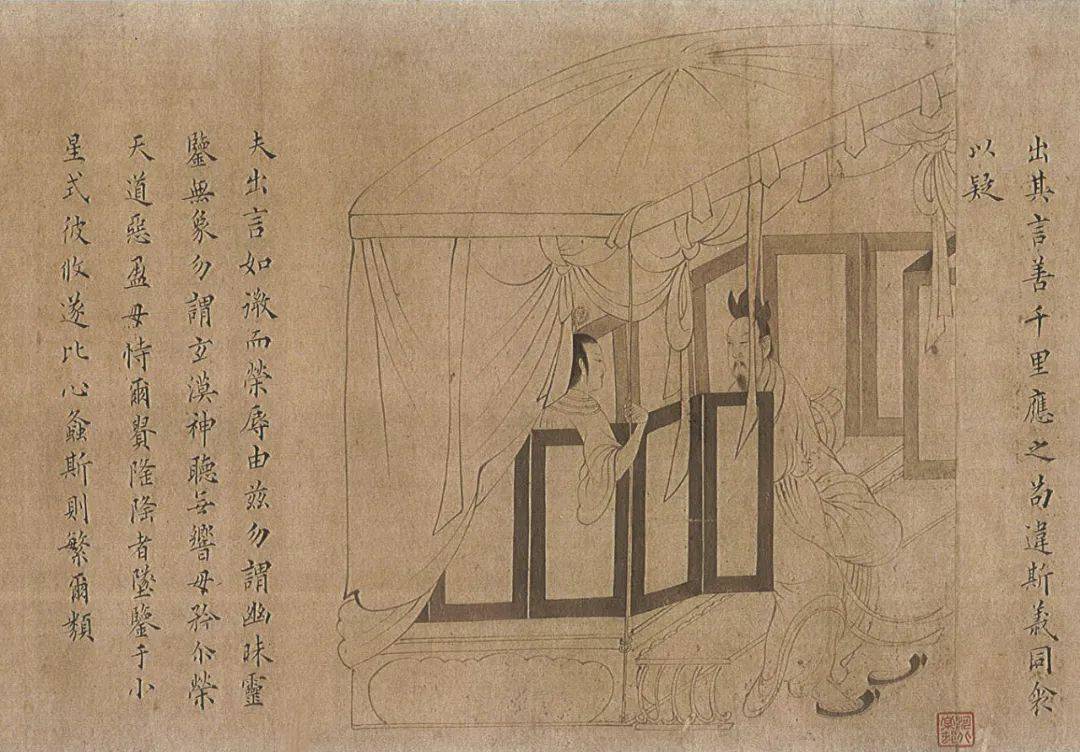 出其言善千里應之苟違斯義同衾
以疑
夫出言如微而榮辱由茲勿謂幽昧靈
鑒無象勿謂玄漠神聽无響毋矜尒榮
天道惡盈毋恃爾貴隆隆者墜鑒于小
星式彼攸遂比心螽斯則繁爾類